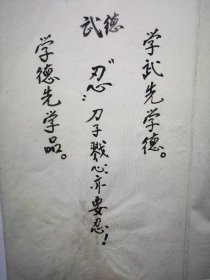 武德
学武先学德。
“忍”刀子戳心亦要忍！
学德先学品。